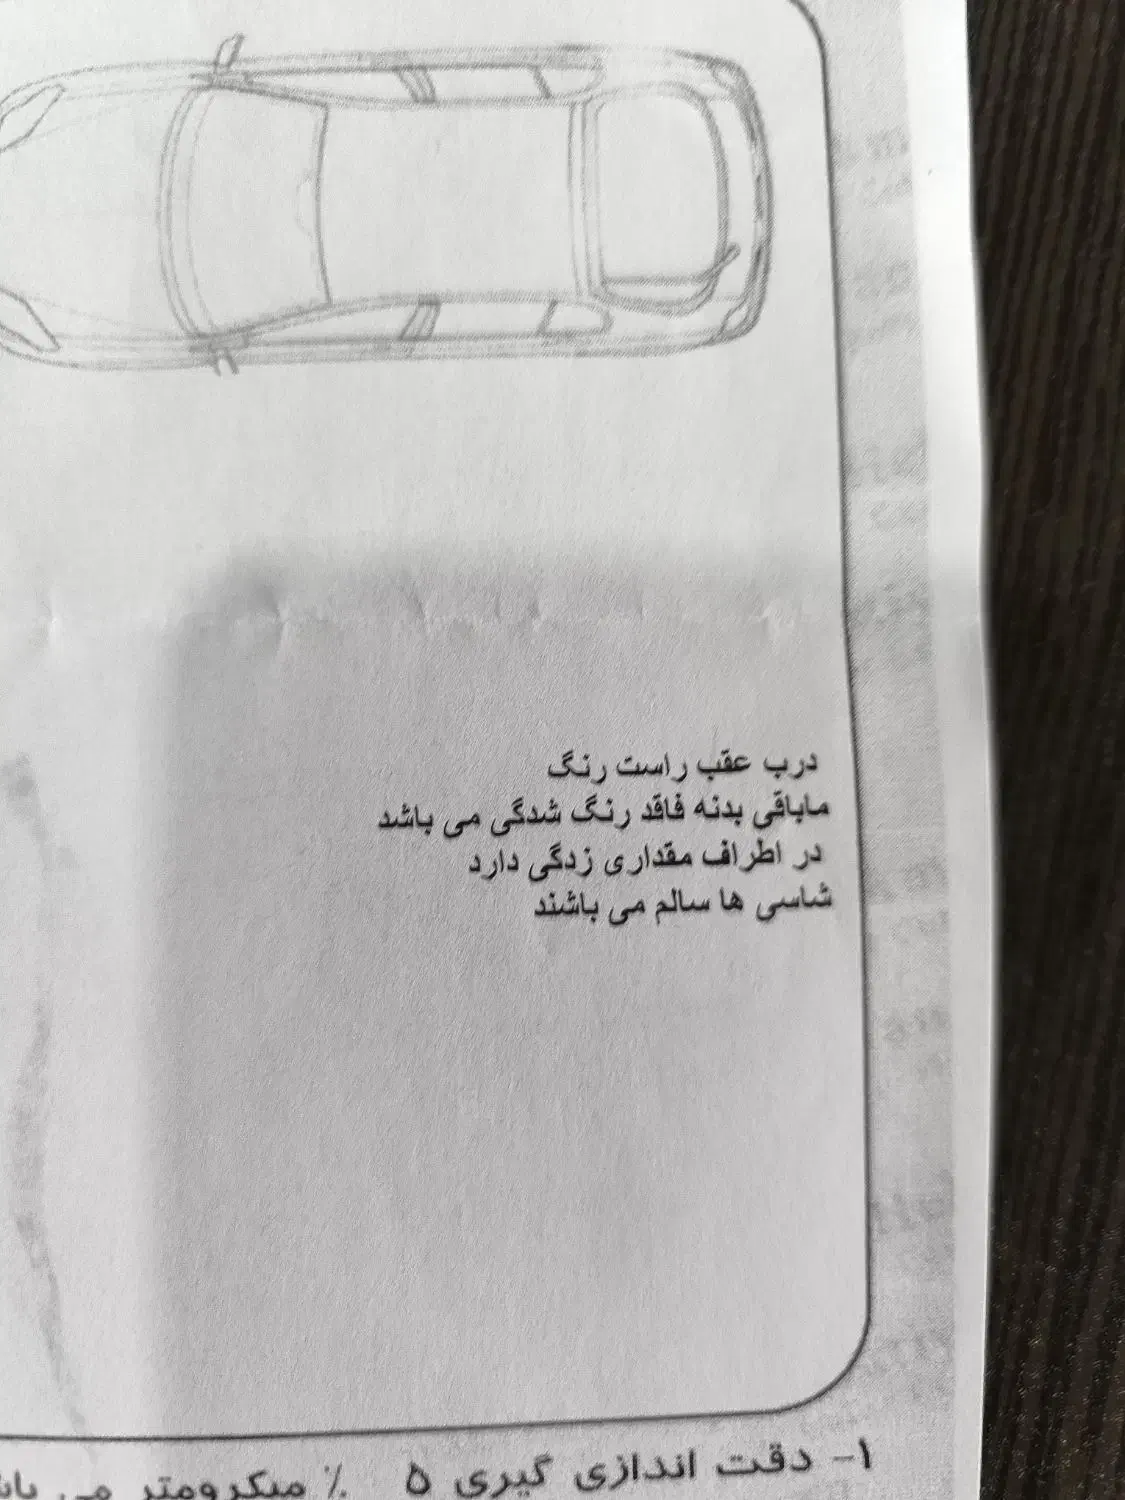 درب عقب راست رنگ
ماباقی بدنه فاقد رنگ شدگی می باشد
در اطراف مقداری زدگی دارد
شاسی ها سالم می باشند
۱- دقت اندازی گیری ۵ ٪ میکرومتر می